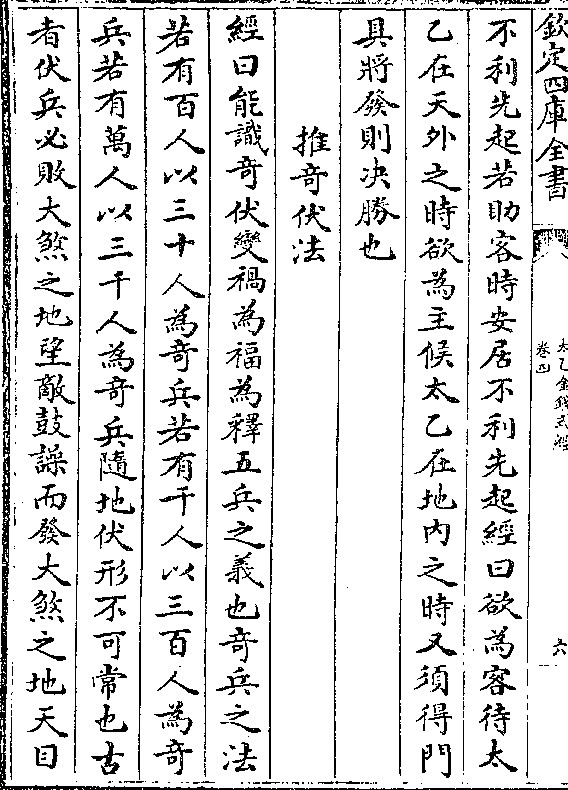 欽定四庫全書
太乙金鏡式經
卷四
六
不利先起若助客時安居不利先起經曰欲為客待太
乙在天外之時欲為主候太乙在地内之時又須得門
具將發則决勝也
推奇伏法
經曰能識奇伏變禍為福為釋五兵之義也奇兵之法
若有百人以三十人為奇兵若有千人以三百人為奇
兵若有萬人以三千人為奇兵隨地伏形不可常也古
者伏兵必敗大煞之地望敵鼓譟而發大煞之地天目